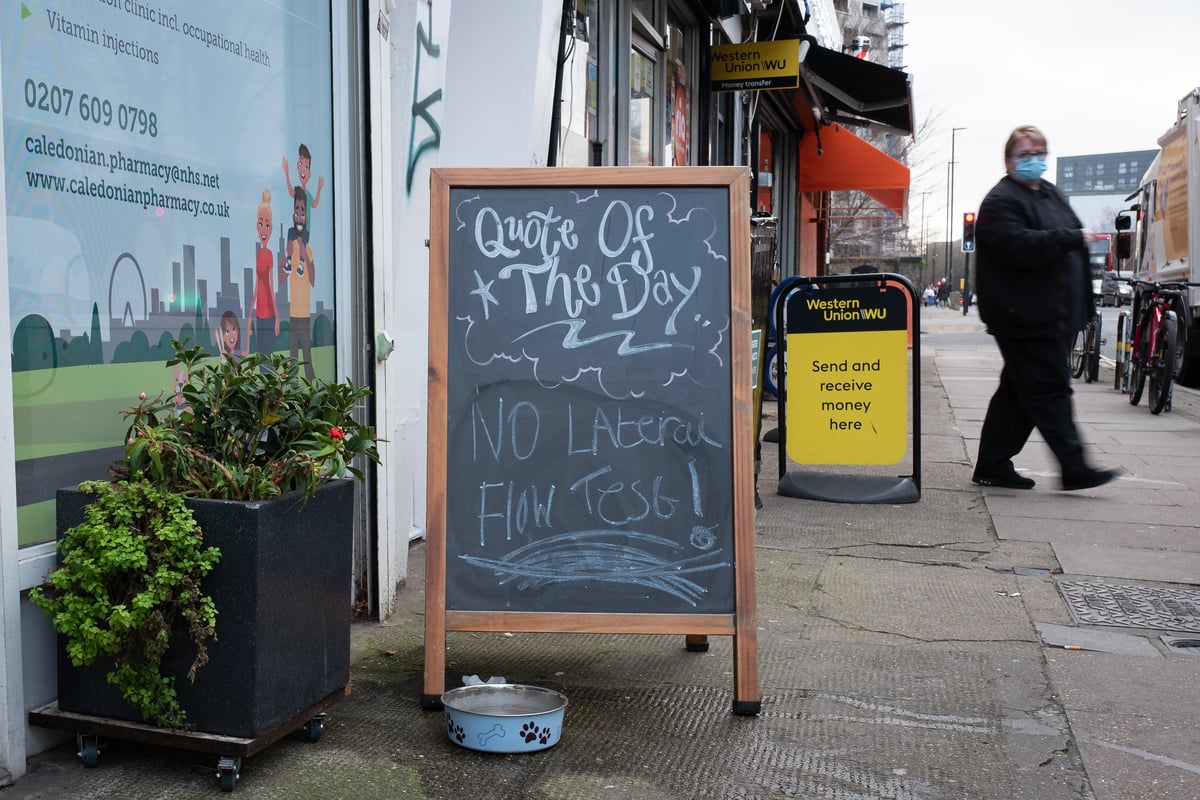 clinic incl. occupational health
Vitamin injections
0207 609 0798
caledonian.pharmacy@nhs.net
www.caledonianpharmacy.co.uk
Quote Of
The Day
NO LAteral
Flow Test!
Western
Union WU
Money transfer
Western
Union WU
Send and
receive
money
here